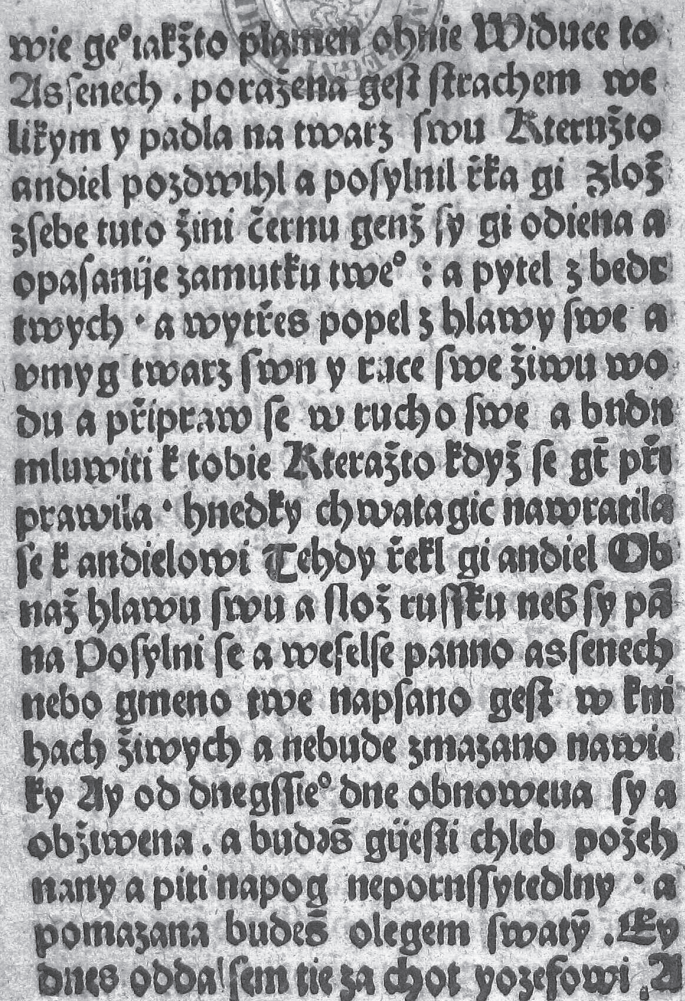 wie geº iakžto plamen ohnie Widuce to
Assenech . poražena gest strachem we
likym y padla na twarz swu Kteružto
andiel pozdwihl a posylnil řka gi Zlož
zsebe tuto žini černu genž sy gi odiena a
opasanije zamutku tweº : a pytel z bedr
twych · a wytřes popel z hlawy swe a
vmyg twarz swu y ruce swe žiwu wo
du a připraw se w rucho swe a budu
mluwiti k tobie Kteražto když se gt při
prawila · hnedky chwatagic nawratila
se k andielowi Tehdy řekl gi andiel Ob
naž hlawu swu a slož russku neb sy pā
na Posylni se a weselse panno assenech
nebo gmeno twe napsano gest w kni
hach žiwych a nebude zmazano nawie
ky Ay od dnegssieº dne obnowena sy a
obžiwena . a budeš gijesti chleb požeh
nany a piti napog neporussytedlny · a
pomazana budeš olegem swatȳ . Ey
dnes oddal sem tie za chot yozefowi A